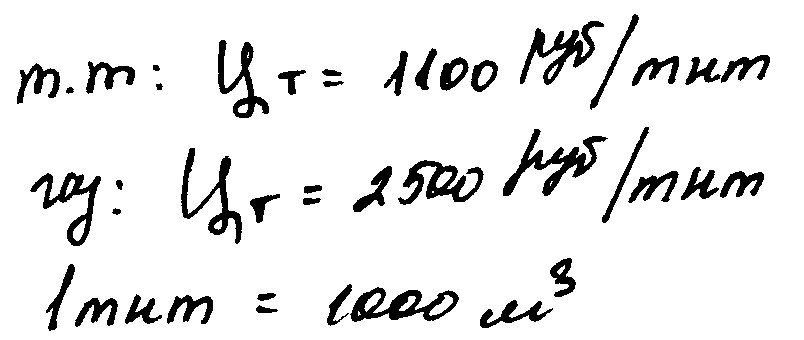 т.т: Цт = 1100 руб/тнт
газ: Цт = 2500 руб/тнт
1тнт = 1000 м³